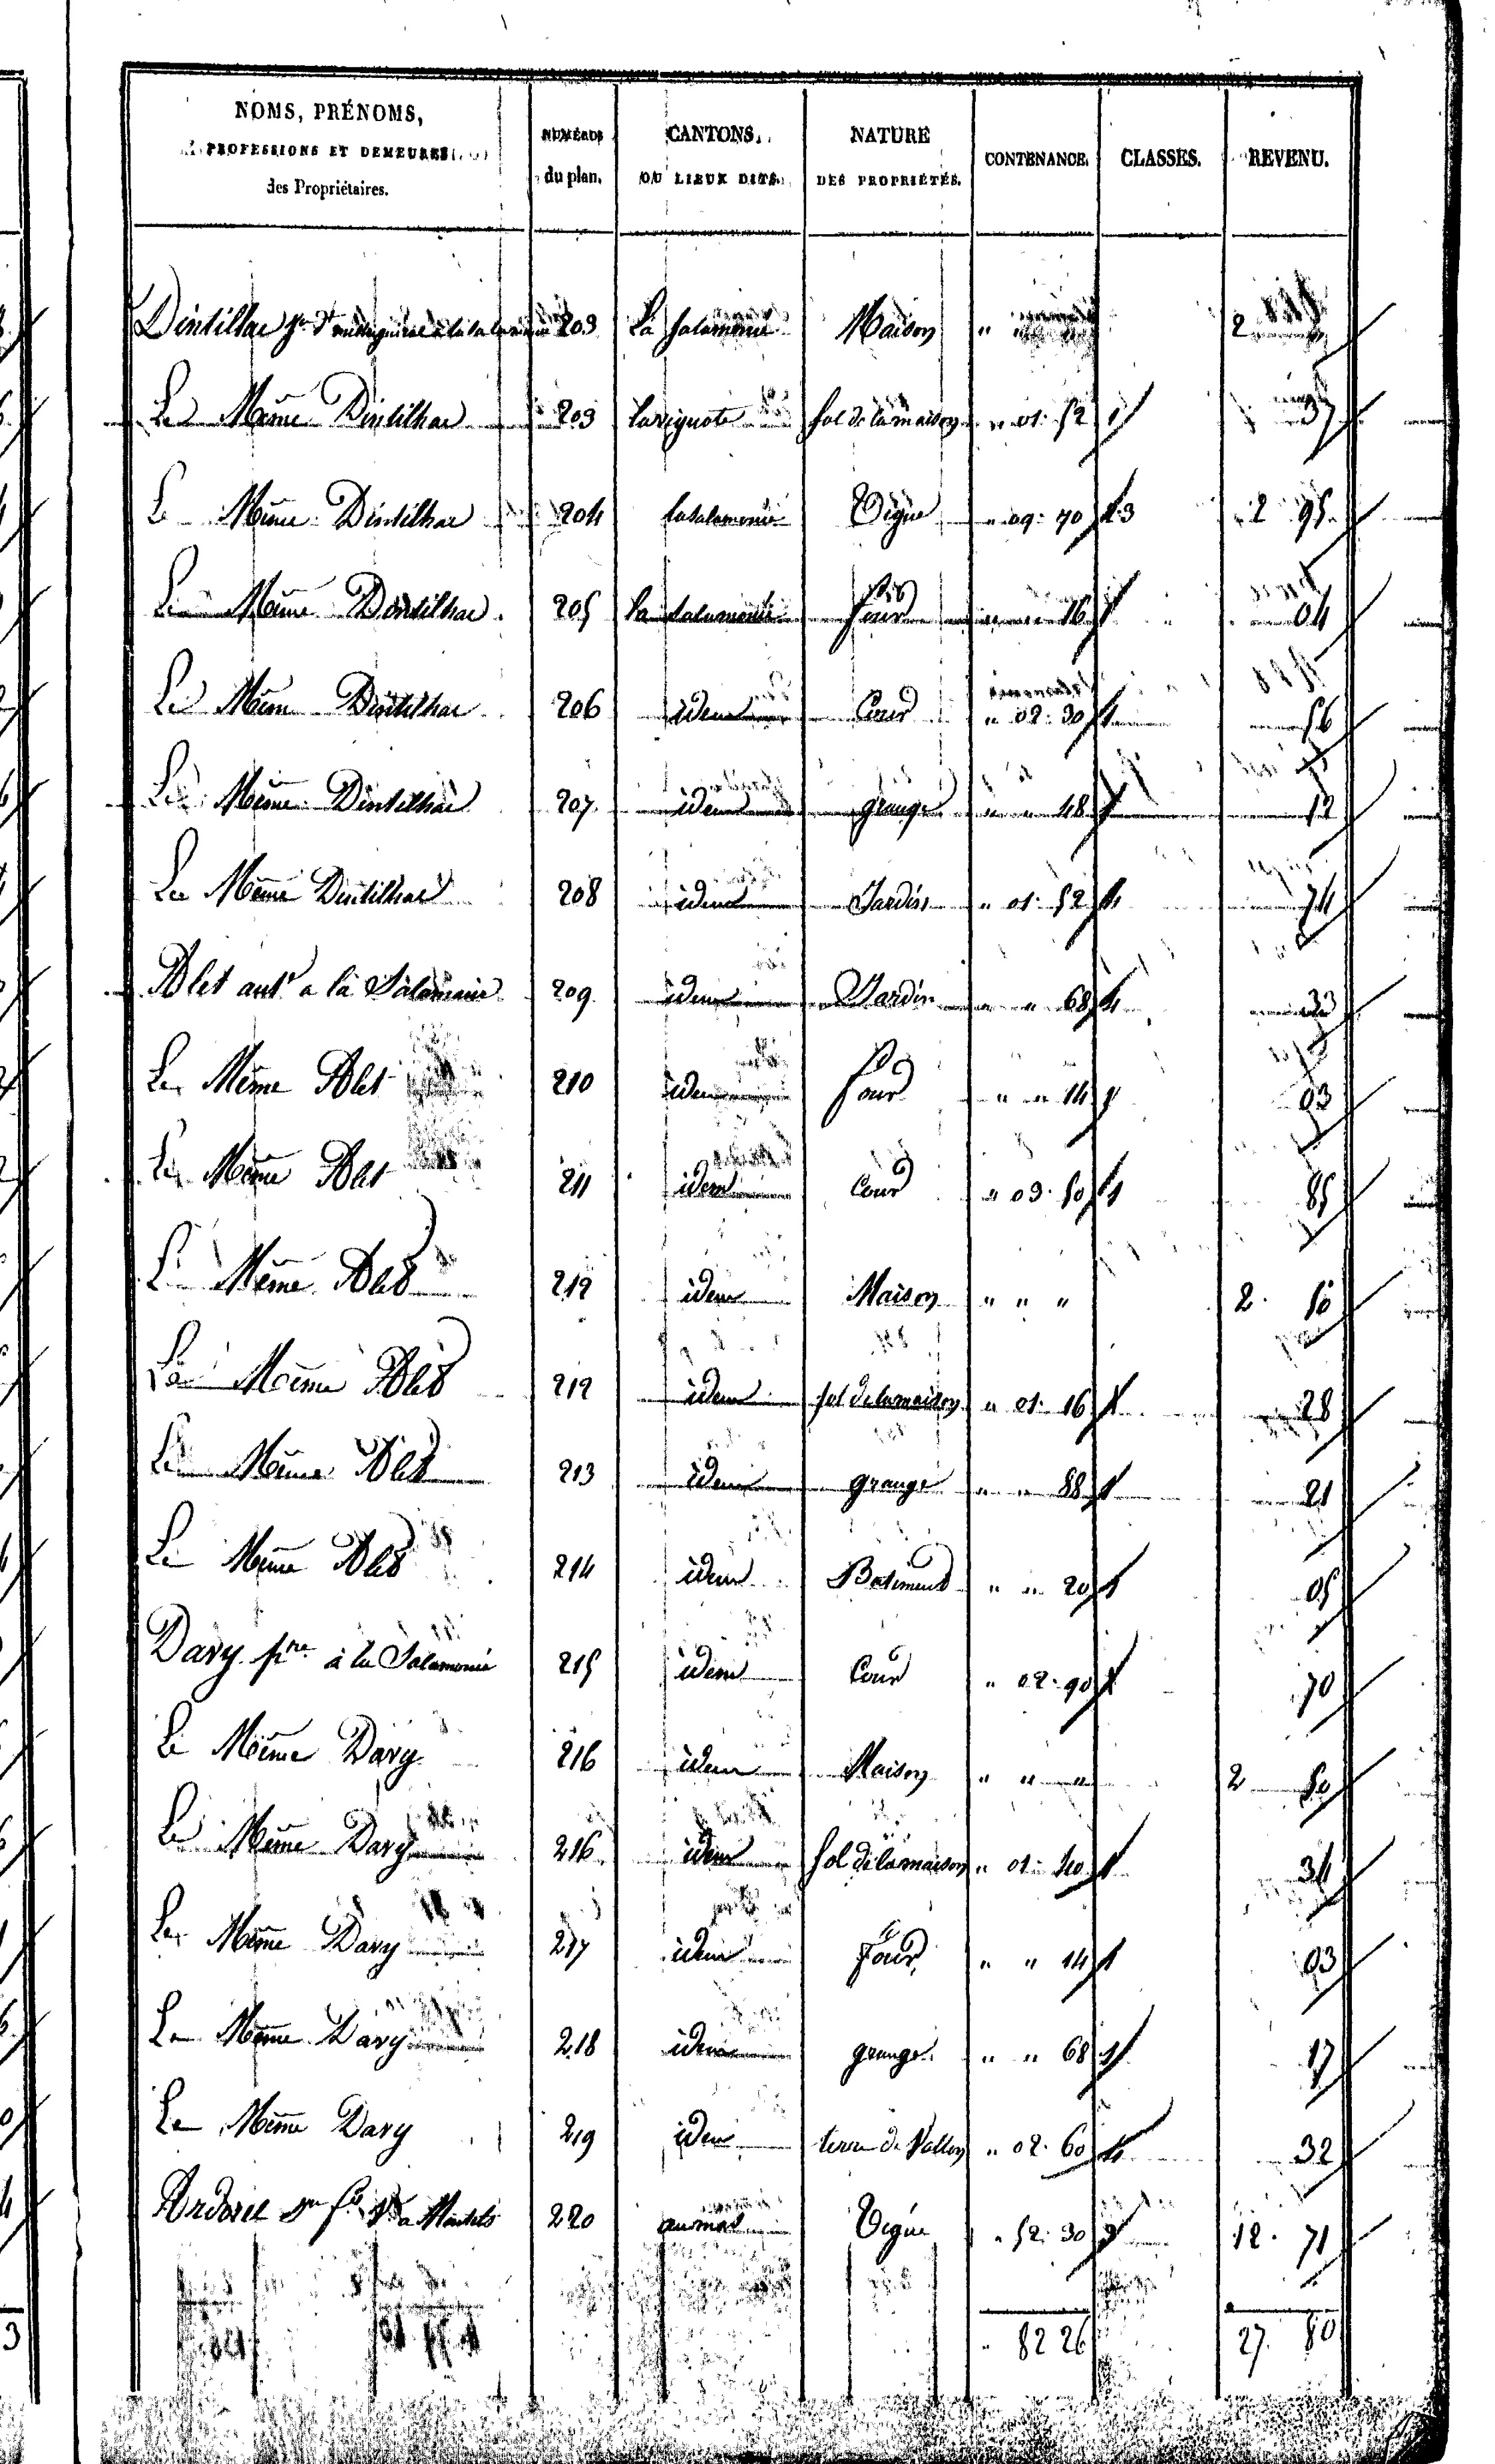 NOMS, PRÉNOMS, PROFESSIONS ET DEMEURES des Propriétaires. NUMÉROS du plan. CANTONS, OU LIEUX DITS. NATURE DES PROPRIÉTÉS. CONTENANCE. CLASSES. REVENU.
Dintilhac 203 La Salamonie Maison " 2
Le Même Dintilhac 203 Lavignote sol de la maison " 01. 52 1 37
Le Même Dintilhac 204 La Salamonie Vigne " 09. 70 2.3 2 95
Le Même Dintilhac 205 La Salamonie four " " 16 1 04
Le Même Dintilhac 206 idem Cour " 02. 30 1 56
Le Même Dintilhac 207 idem grange " " 48 1 12
Le Même Dintilhac 208 idem Jardin " 01. 52 1 74
Blet ant. a la Salamonie 209 idem Jardin " " 68 1 33
Le Même Blet 210 idem four " " 14 1 03
Le Même Blet 211 idem Cour " 03. 50 1 85
Le Même Blet 212 idem Maison " " " 2. 50
Le Même Blet 212 idem sol de la maison " 01. 16 1 28
Le Même Blet 213 idem grange " " 88 1 21
Le Même Blet 214 idem Batiment " " 20 1 05
Davy pre à la Salamonie 215 idem Cour " 02. 90 1 70
Le Même Davy 216 idem Maison " " " 2 50
Le Même Davy 216 idem sol de la maison " 01. 40 1 34
Le Même Davy 217 idem four " " 14 1 03
Le Même Davy 218 idem grange " " 68 1 17
Le Même Davy 219 idem terre de Vallon " 02. 60 4 32
220 au mas Vigne " 52. 30 2 12. 71
" 82 26 27. 80
3